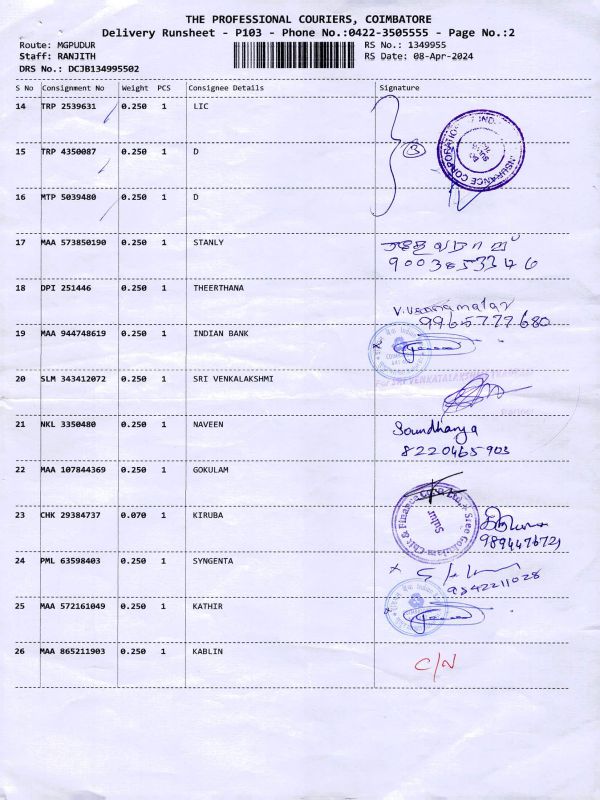 THE PROFESSIONAL COURIERS, COIMBATORE
Delivery Runsheet - P103 - Phone No.:0422-3505555 - Page No.:2
Route: MGPUDUR RS No.: 1349955
Staff: RANJITH RS Date: 08-Apr-2024
DRS No.: DCJB134995502
S No Consignment No Weight PCS Consignee Details Signature
14 TRP 2539631 0.250 1 LIC
15 TRP 4350087 0.250 1 D 3
16 MTP 5039480 0.250 1 D
17 MAA 573850190 0.250 1 STANLY
9003853346
18 DPI 251446 0.250 1 THEERTHANA
9965777680
19 MAA 944748619 0.250 1 INDIAN BANK
20 SLM 343412072 0.250 1 SRI VENKALAKSHMI
21 NKL 3350480 0.250 1 NAVEEN Soundhanya
8220465903
22 MAA 107844369 0.250 1 GOKULAM
23 CHK 29384737 0.070 1 KIRUBA
24 PML 63598403 0.250 1 SYNGENTA
9842211028
25 MAA 572161049 0.250 1 KATHIR
26 MAA 865211903 0.250 1 KABLIN C/N